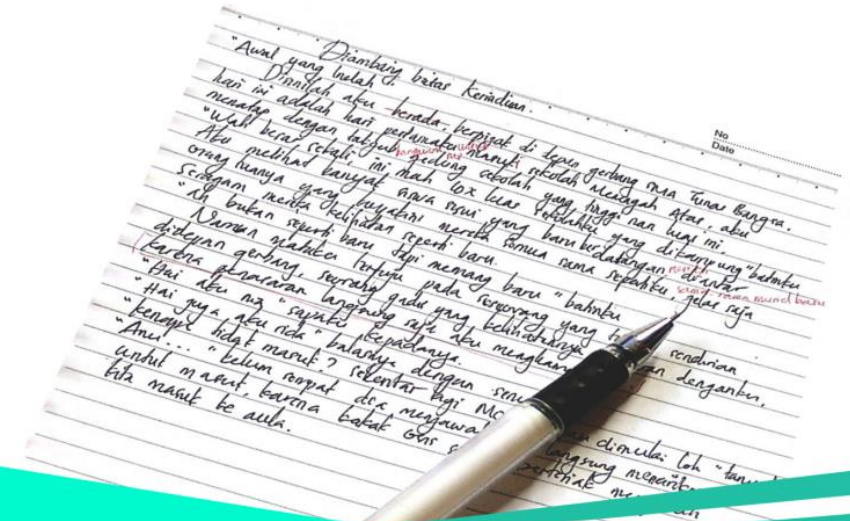 No
Date
Diambang batas Kerinduan.
"Awal yang Indah"
Disinilah aku berada, berpijat di depan gerbang sma Tunas Bangsa.
hari ini adalah hari pertamaku sekolah Menengah Atas, aku
menatap dengan takjub gedung sekolah yang tinggi nan luas ini.
"Wah besar sekali, ini mah 10x luas sekolahku yang dikampung" batinku
Aku melihad banyak siswa siswi yang baru berdatangan diantar
orang tuanya yang buyakini mereka semua sama sepertiku, jelas saja
sama sama murid baru
Seragam mereka kelihatan seperti baru.
"Ah bukan seperti baru tapi memang baru" batinku
Namun mataku tertuju pada seseorang yang sendirian
didepan gerbang, seorang gadis yang kelihatannya denganku,
karena penasaran langsung saja aku
"Hai aku nz" sapaku kepadanya.
"Hai juga aku rida" balasnya dengan
"kenapa tidak masuk? sebentar lagi dimulai loh"
"Anu..." belum sempat dia langsung
untuk masuk, karena
kita masuk ke aula.